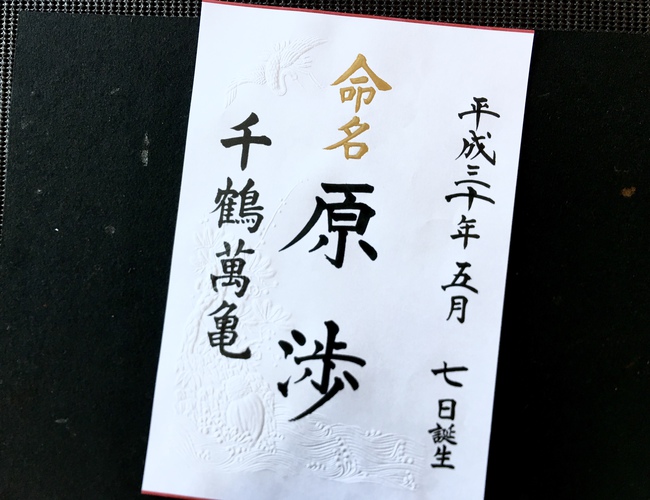 平成三十年 五月 七日誕生
命名
原 渉
千鶴萬亀